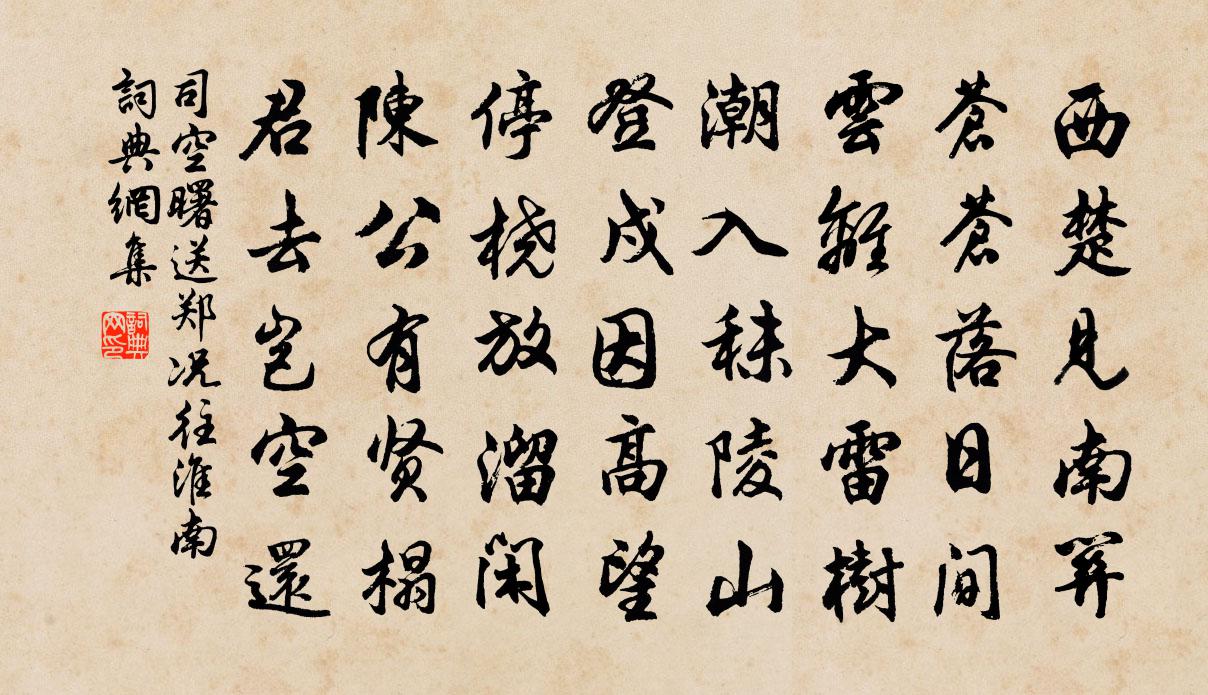 西楚見南關
蒼蒼落日间
雲離大雷樹
潮入秣陵山
登戍因高望
停桡放溜闲
陳公有贤榻
君去岂空還
司空曙送郑况往淮南
詞典網集
詞典
网印